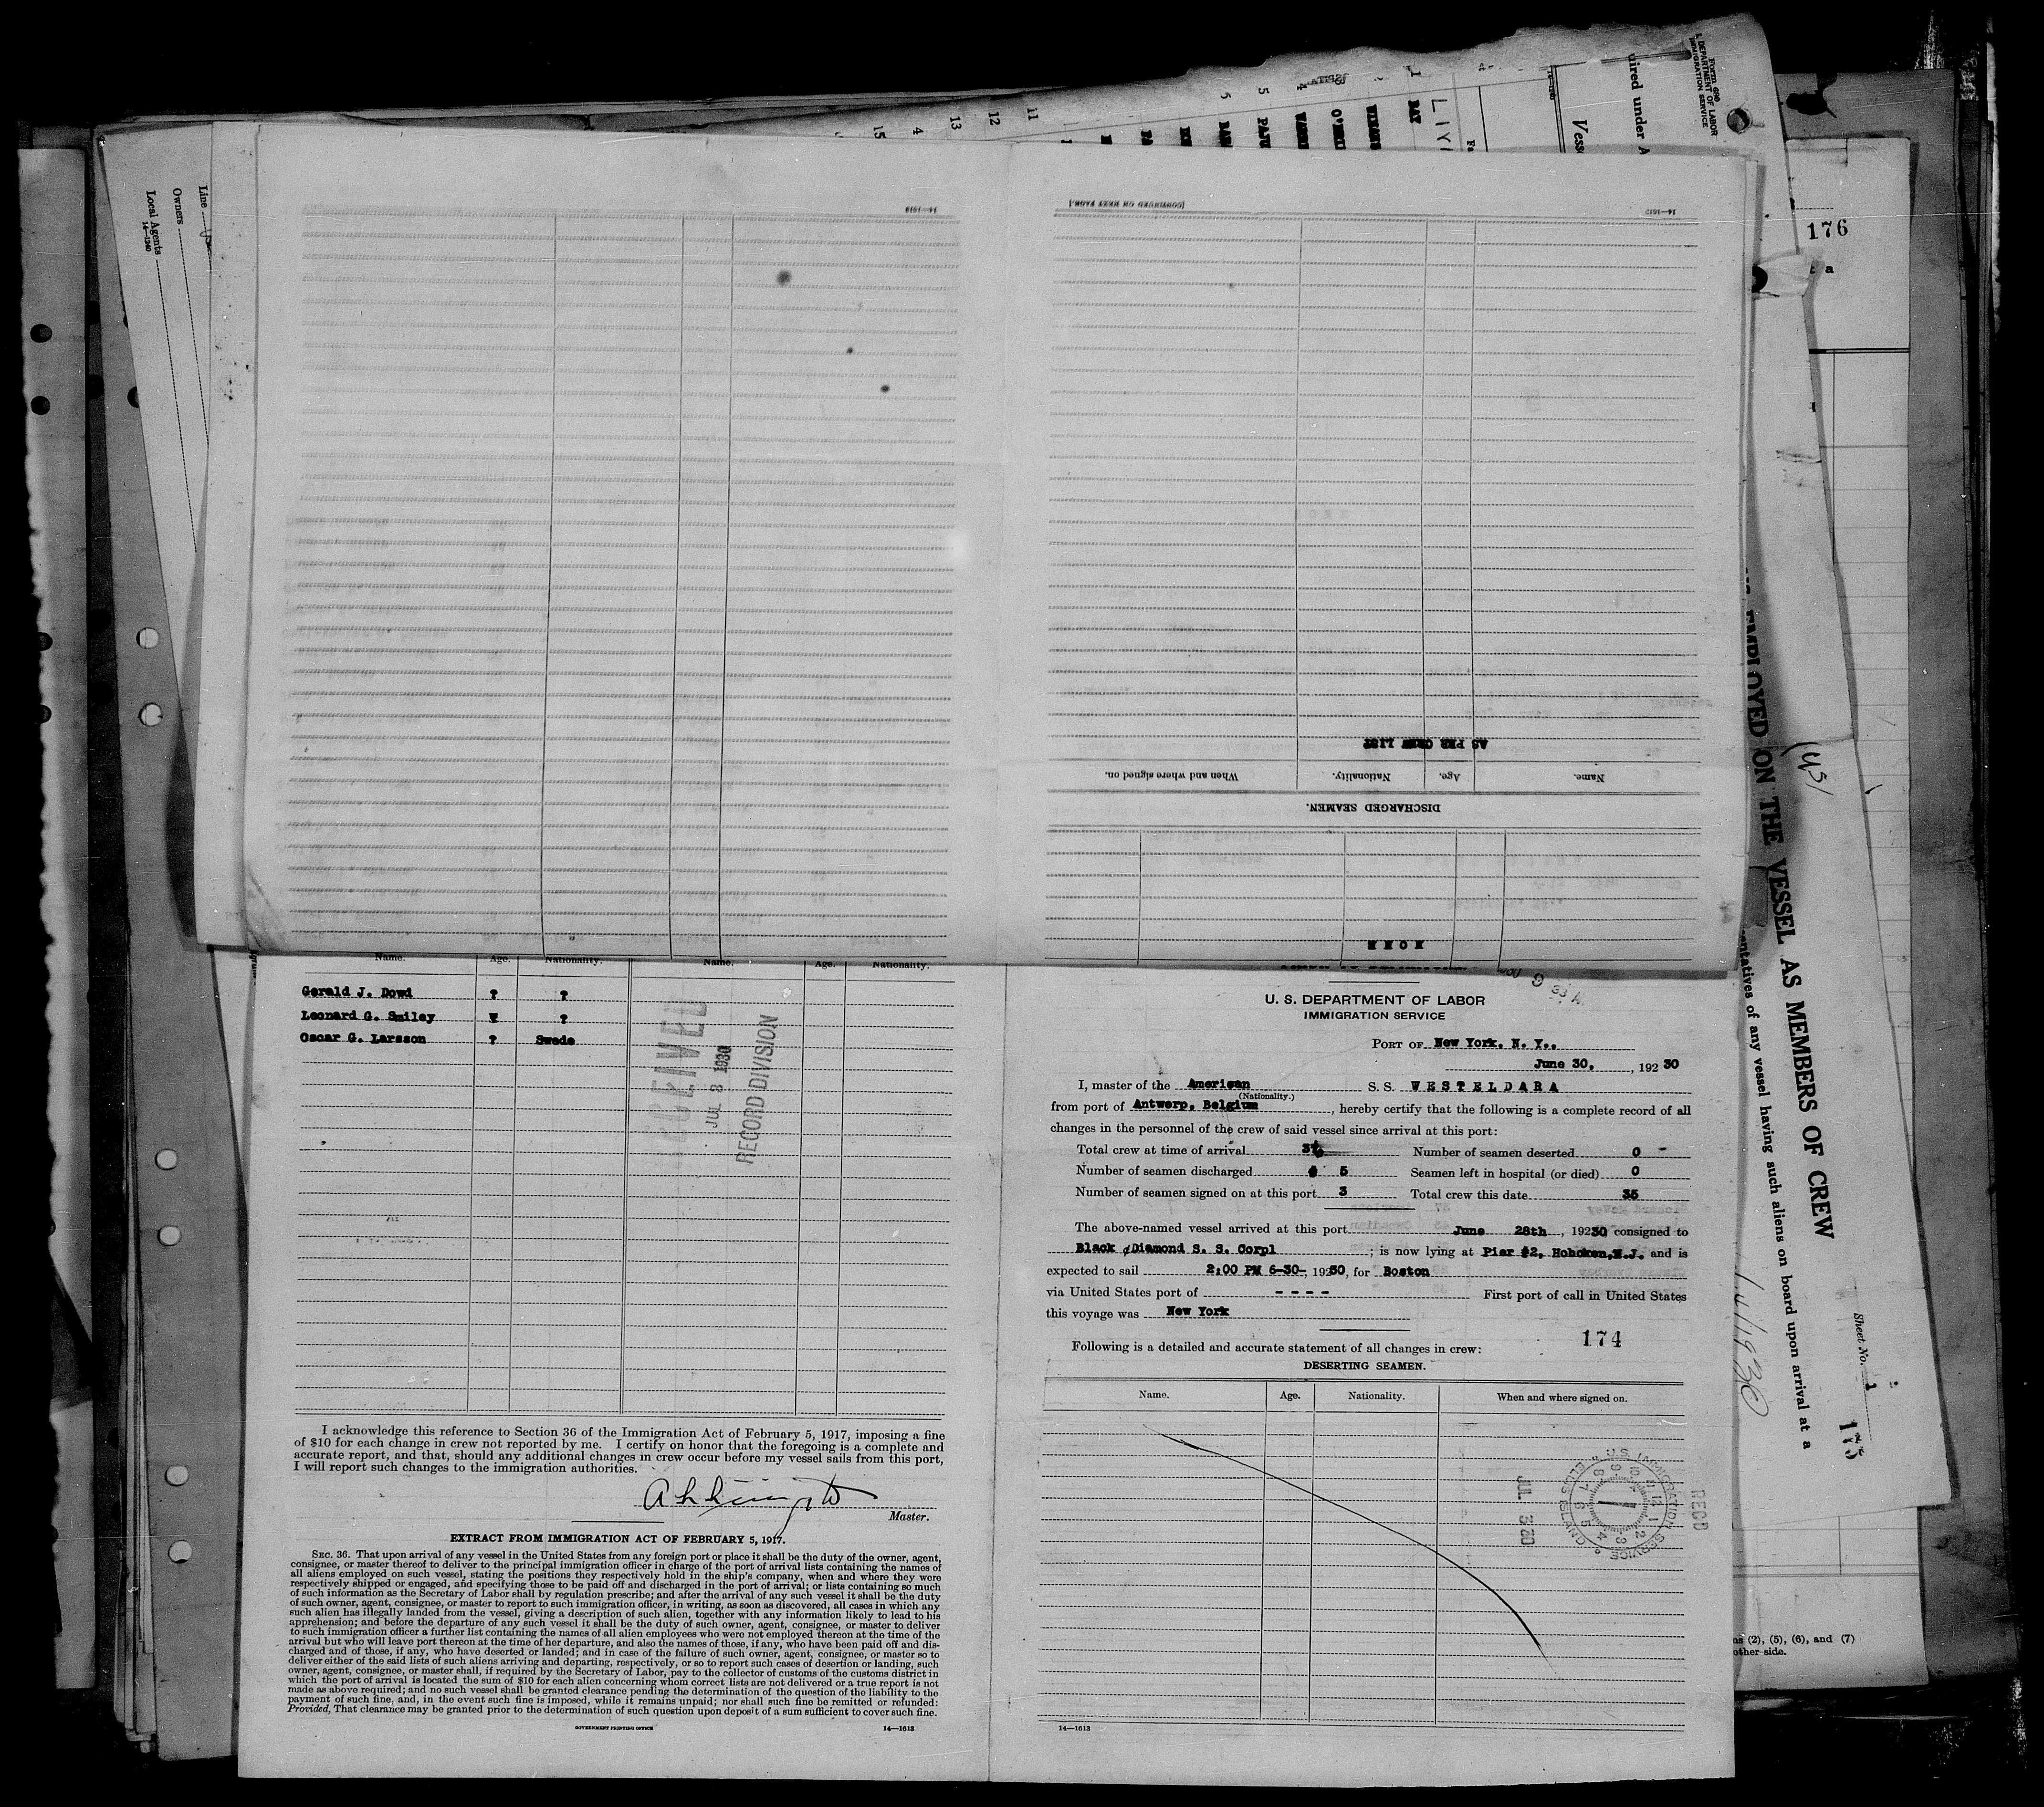 14—1613
[CONTINUED ON NEXT PAGE.]
14—1613
AS PER CREW LIST
Name.
Age.
Nationality.
When and where signed on.
DISCHARGED SEAMEN.
NONE
Name. Age. Nationality. Name. Age. Nationality.
Gerald J. Dowd ? ?
Leonard G. Smiley ?
Oscar G. Larsson ? Swede
RECEIVED
JUL 8 1930
RECORD DIVISION
I acknowledge this reference to Section 36 of the Immigration Act of February 5, 1917, imposing a fine
of $10 for each change in crew not reported by me. I certify on honor that the foregoing is a complete and
accurate report, and that, should any additional changes in crew occur before my vessel sails from this port,
I will report such changes to the immigration authorities.
Master.
EXTRACT FROM IMMIGRATION ACT OF FEBRUARY 5, 1917.
SEC. 36. That upon arrival of any vessel in the United States from any foreign port or place it shall be the duty of the owner, agent,
consignee, or master thereof to deliver to the principal immigration officer in charge of the port of arrival lists containing the names of
all aliens employed on such vessel, stating the positions they respectively hold in the ship's company, when and where they were
respectively shipped or engaged, and specifying those to be paid off and discharged in the port of arrival; or lists containing so much
of such information as the Secretary of Labor shall by regulation prescribe; and after the arrival of any such vessel it shall be the duty
of such owner, agent, consignee, or master to report to such immigration officer, in writing, as soon as discovered, all cases in which any
such alien has illegally landed from the vessel, giving a description of such alien, together with any information likely to lead to his
apprehension; and before the departure of any such vessel it shall be the duty of such owner, agent, consignee, or master to deliver
to such immigration officer a further list containing the names of all alien employees who were not employed thereon at the time of the
arrival but who will leave port thereon at the time of her departure, and also the names of those, if any, who have been paid off and dis-
charged and of those, if any, who have deserted or landed; and in case of the failure of such owner, agent, consignee, or master so to
deliver either of the said lists of such aliens arriving and departing, respectively, or so to report such cases of desertion or landing, such
owner, agent, consignee, or master shall, if required by the Secretary of Labor, pay to the collector of customs of the customs district in
which the port of arrival is located the sum of $10 for each alien concerning whom correct lists are not delivered or a true report is not
made as above required; and no such vessel shall be granted clearance pending the determination of the question of the liability to the
payment of such fine, and, in the event such fine is imposed, while it remains unpaid; nor shall such fine be remitted or refunded:
Provided, That clearance may be granted prior to the determination of such question upon deposit of a sum sufficient to cover such fine.
GOVERNMENT PRINTING OFFICE 14—1613
U. S. DEPARTMENT OF LABOR
IMMIGRATION SERVICE
PORT OF New York. N. Y..
June 30, , 192 30
I, master of the American S. S. WESTELDARA
(Nationality.)
from port of Antwerp, Belgium , hereby certify that the following is a complete record of all
changes in the personnel of the crew of said vessel since arrival at this port:
Total crew at time of arrival Number of seamen deserted 0 -
Number of seamen discharged 5 Seamen left in hospital (or died) 0
Number of seamen signed on at this port 3 Total crew this date 35
The above-named vessel arrived at this port June 28th , 19230 consigned to
Black Diamond S. S. Corpl ; is now lying at Pier #2, Hoboken,N.J. and is
expected to sail 2:00 PM 6-30-, 19230, for Boston
via United States port of - - - - First port of call in United States
this voyage was New York
174
Following is a detailed and accurate statement of all changes in crew:
DESERTING SEAMEN.
Name. Age. Nationality. When and where signed on.
U.S. IMMIGRATION SERVICE ELLIS ISLAND
REC'D
JUL 3 30
14—1613
Line
Owners
Local Agents
14—1240
15
4
13
12
11
5
5
4
Form 680
DEPARTMENT OF LABOR
IMMIGRATION SERVICE
176
EMPLOYED ON THE VESSEL AS MEMBERS OF CREW
of any vessel having such aliens on board upon arrival at a
Sheet No. 1
175
(2), (5), (6), and (7)
other side.